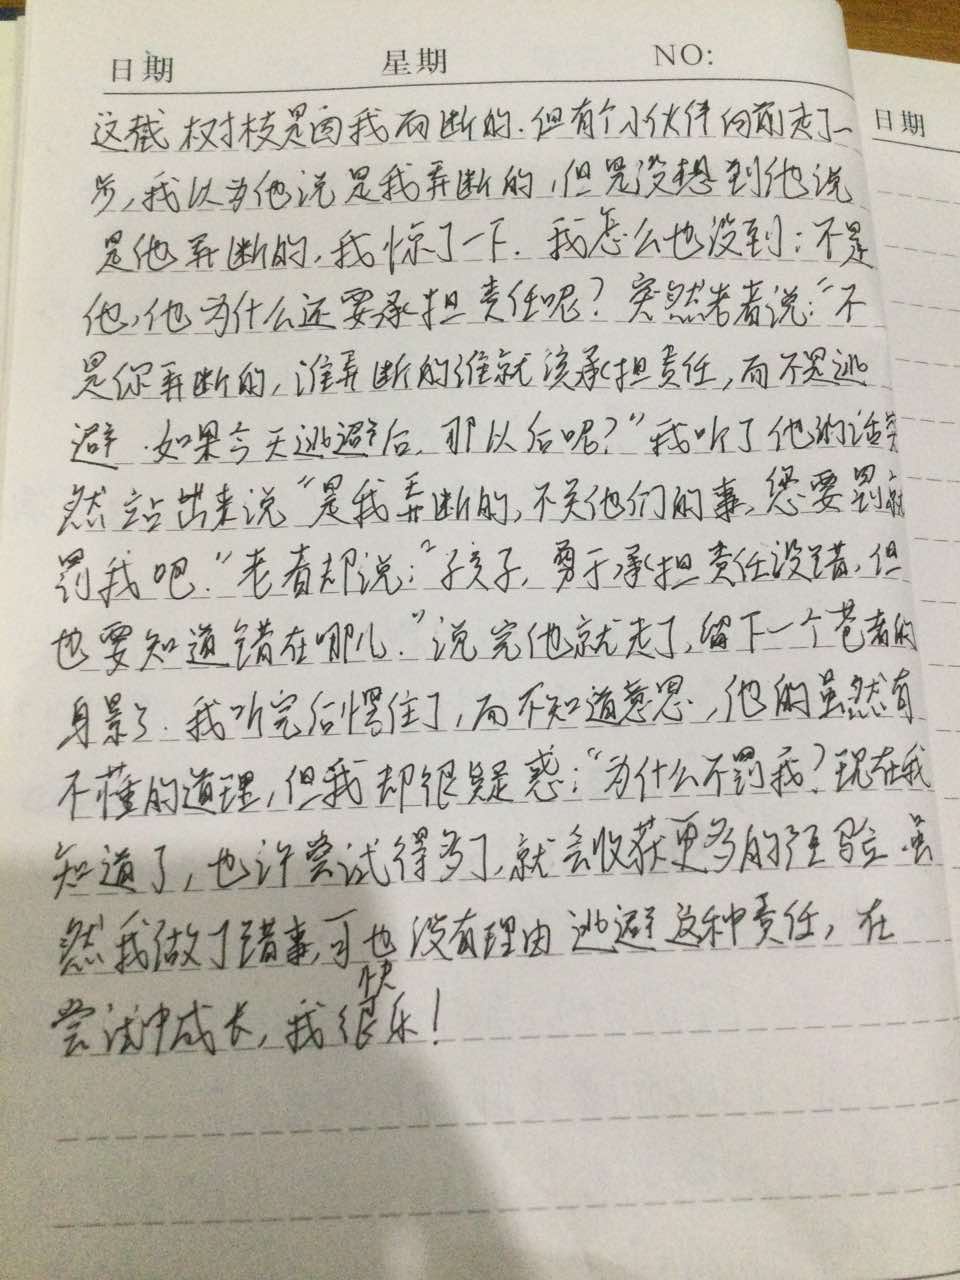 日期 星期 NO:
日期
这截树枝是因我而断的.但有个小伙伴向前走了一
步,我以为他说是我弄断的,但是没想到他说
是他弄断的,我惊了一下.我怎么也没到:不是
他,他为什么还要承担责任呢?突然老者说:"不
是你弄断的,谁弄断的谁就该承担责任,而不是逃
避.如果今天逃避后,那以后呢?"我听了他的话突
然站出来说"是我弄断的,不关他们的事,您要罚就
罚我吧."老者却说:"孩子,勇于承担责任没错,但
也要知道错在哪儿."说完他就走了,留下一个苍老的
身影.我听完后愣住了,而不知道意思,他的虽然有
不懂的道理,但我却很疑惑:"为什么不罚我?现在我
知道了,也许尝试得多了,就会收获更多的经验.虽
然我做了错事,可也没有理由逃避这种责任,在
尝试中成长,我很快乐!